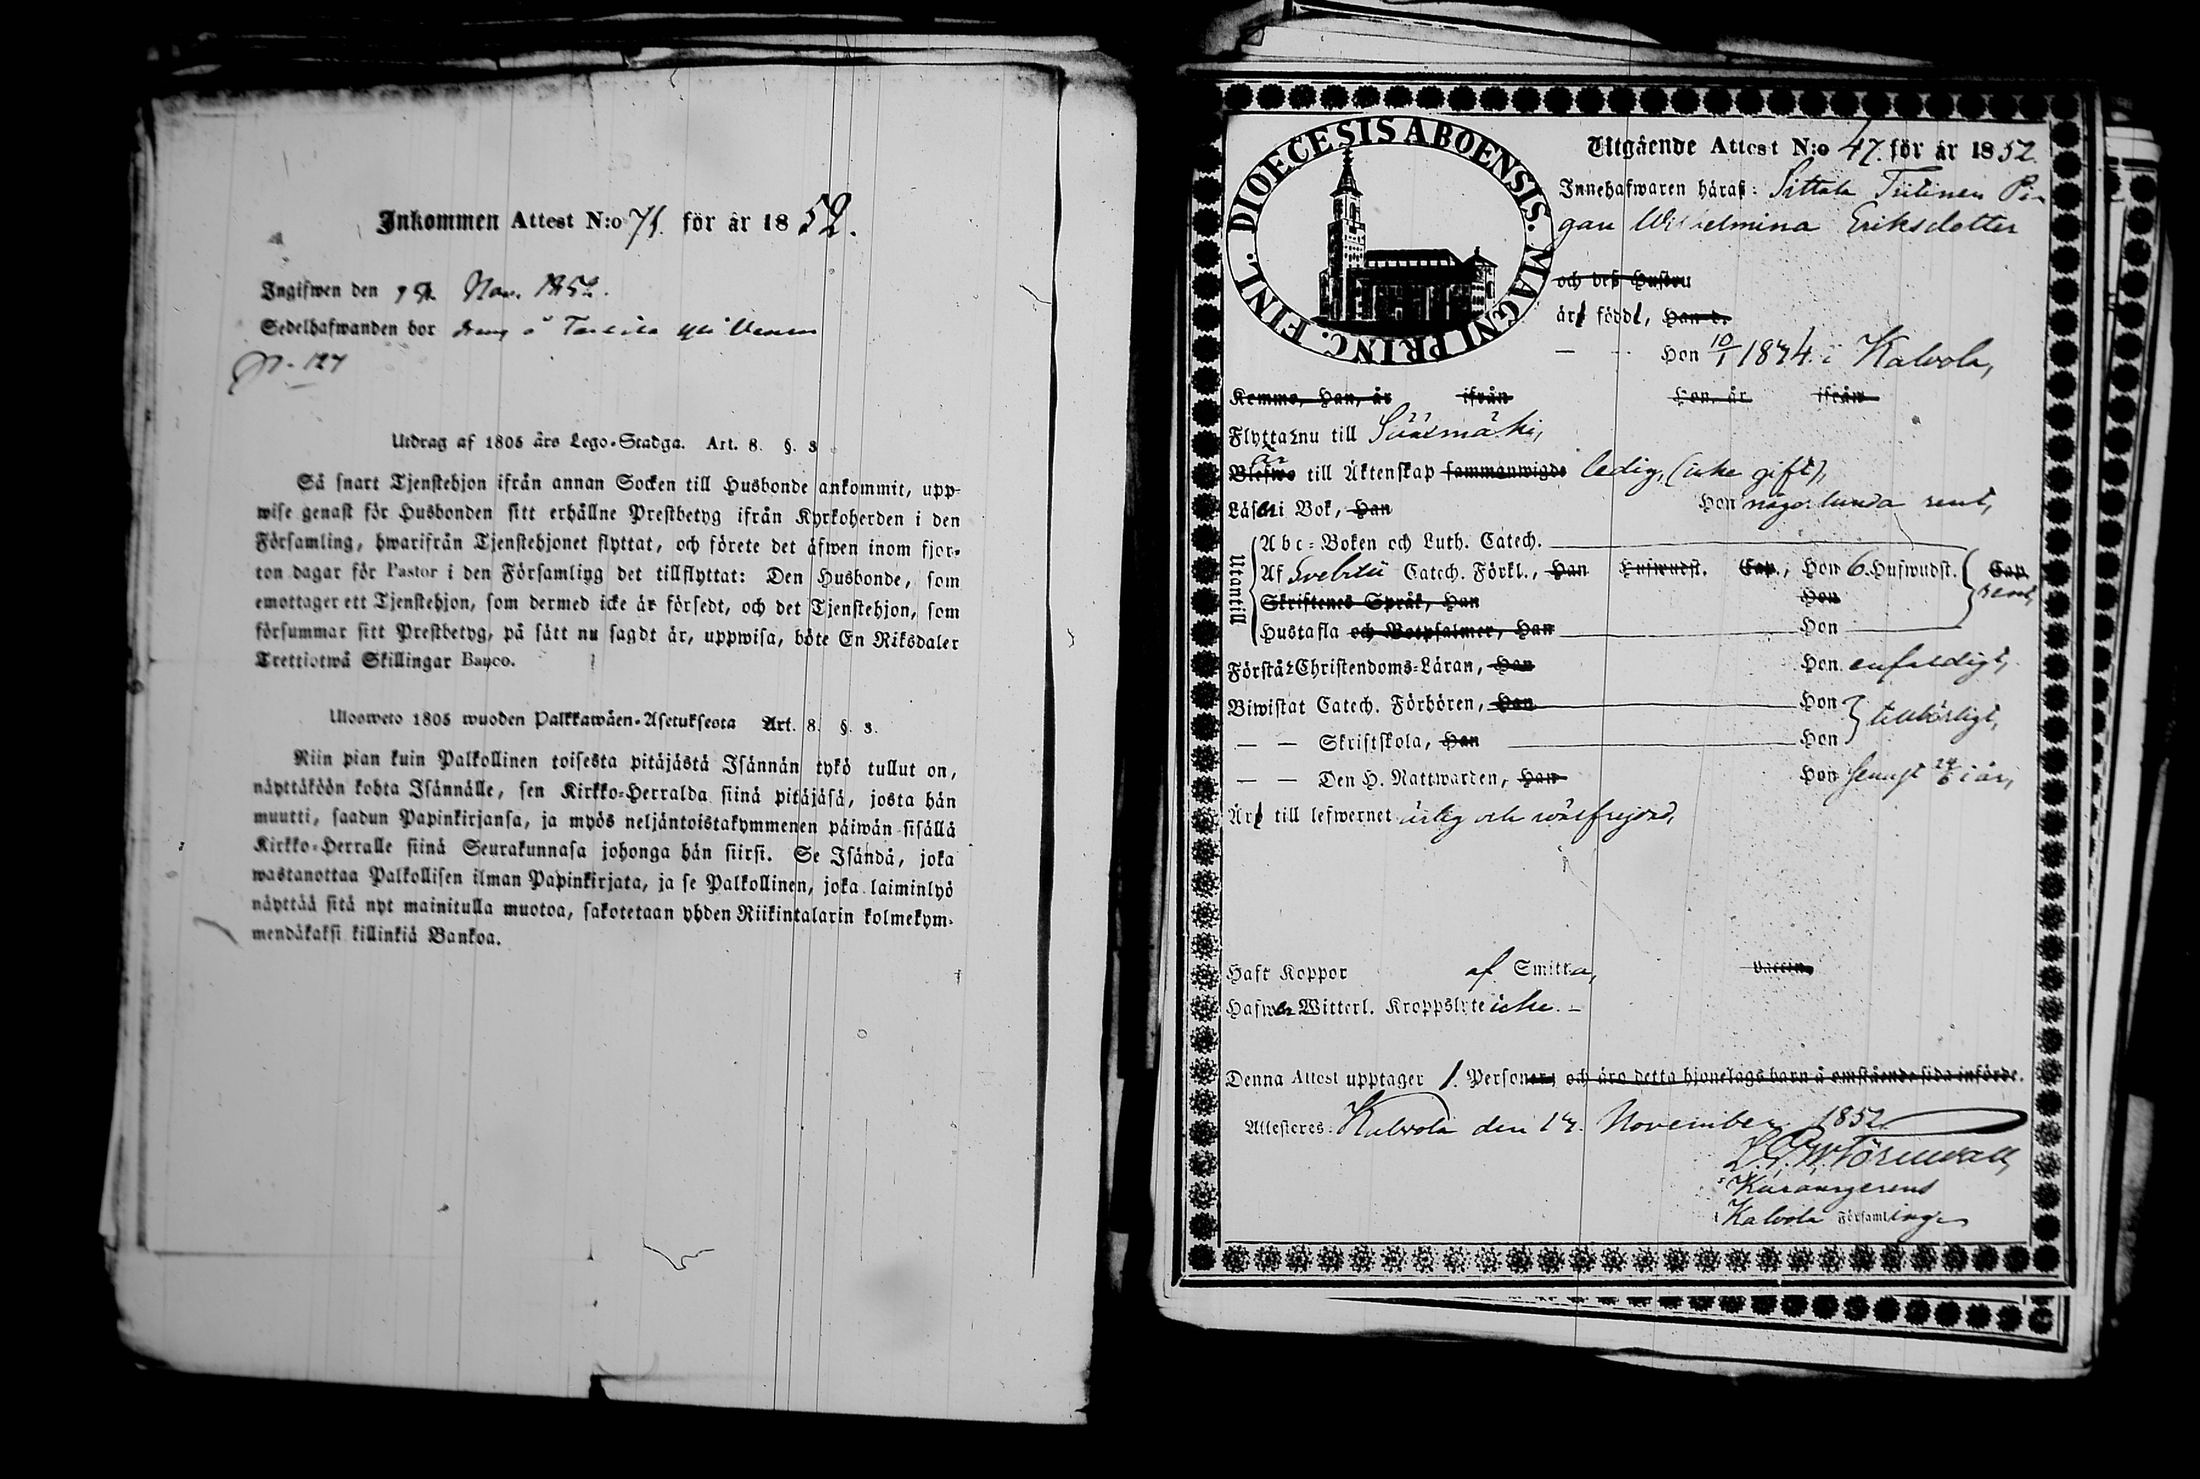 Inkommen Attest N:o 71. för år 1852.
Ingifwen den Nov. 1852.
Sedelhafwanden bor
p. 127
Utdrag af 1805 års Lego-Stadga. Art. 8. §. 3
Så snart Tjenstehjon ifrån annan Socken till Husbonde ankommit, upp-
wise genast för Husbonden sitt erhållne Prestbetyg ifrån Kyrkoherden i den
Församling, hwarifrån Tjenstehjonet flyttat, och förete det äfwen inom fjor-
ton dagar för Pastor i den Församling det tillflyttat: Den Husbonde, som
emottager ett Tjenstehjon, som dermed icke är försedt, och det Tjenstehjon, som
försummar sitt Prestbetyg, på sätt nu sagdt är, uppwisa, böte En Riksdaler
Trettiotwå Skillingar Banco.
Ulosweto 1805 wuoden Palkkawäen-Asetuksesta Art. 8. §. 3.
Niin pian kuin Palkollinen toisesta pitäjästä Isännän tykö tullut on,
näyttäköön kohta Isännälle, sen Kirkko-Herralda siinä pitäjäsä, josta hän
muutti, saadun Papinkirjansa, ja myös neljäntoistakymmenen päiwän sisällä
Kirkko-Herralle siinä Seurakunnasa johonga hän siirsi. Se Isändä, joka
wastanottaa Palkollisen ilman Papinkirjata, ja se Palkollinen, joka laiminlyö
näyttää sitä nyt mainitulla muotoa, sakotetaan yhden Riikintalarin kolmekym-
mendäkaksi killinkiä Bankoa.
DIOECESIS ABOENSIS. MAGNI PRINC. FINL.
Utgående Attest N:o 47. för år 1852.
Innehafwaren häraf: Sittala Pi-
gan Wilhelmina Eriksdotter
och dess Hustru
är född, Han d.
— — Hon 10/1 1834 i Kalvola,
Kemmo, Han, år ifrån Hon, år ifrån
Flyttar nu till Sääksmäki,
Blefwo är till Äktenskap sammanwigde ledig, (icke gift),
Läser i Bok, Han Hon någorlunda rent,
Utantill
Abc-Boken och Luth. Catech.
Af Svebilii Catech. Förkl., Han Hufwudst. Cap., Hon 6. Hufwudst. Cap. rent,
Skriftenes Språk, Han Hon
Hustafla och Botpsalmer, Han Hon
Förstår Christendoms-Läran, Han Hon enfaldigt,
Biwistat Catech. Förhören, Han Hon tillbörligt,
— — Skriftskola, Han Hon
— — Den H. Nattwarden, Han Hon senast 24/6 i år,
Är till lefwernet ärlig och wälfrejdad,
Haft Koppor af Smitta, Vaccin,
Hafwer Witterl. Kroppslyte icke. —
Denna Attest upptager 1. Personer; och äro detta hjonelags barn å omstående sida införde.
Attesteras: Kalvola den 17. November 1852
Kalvola Församlings